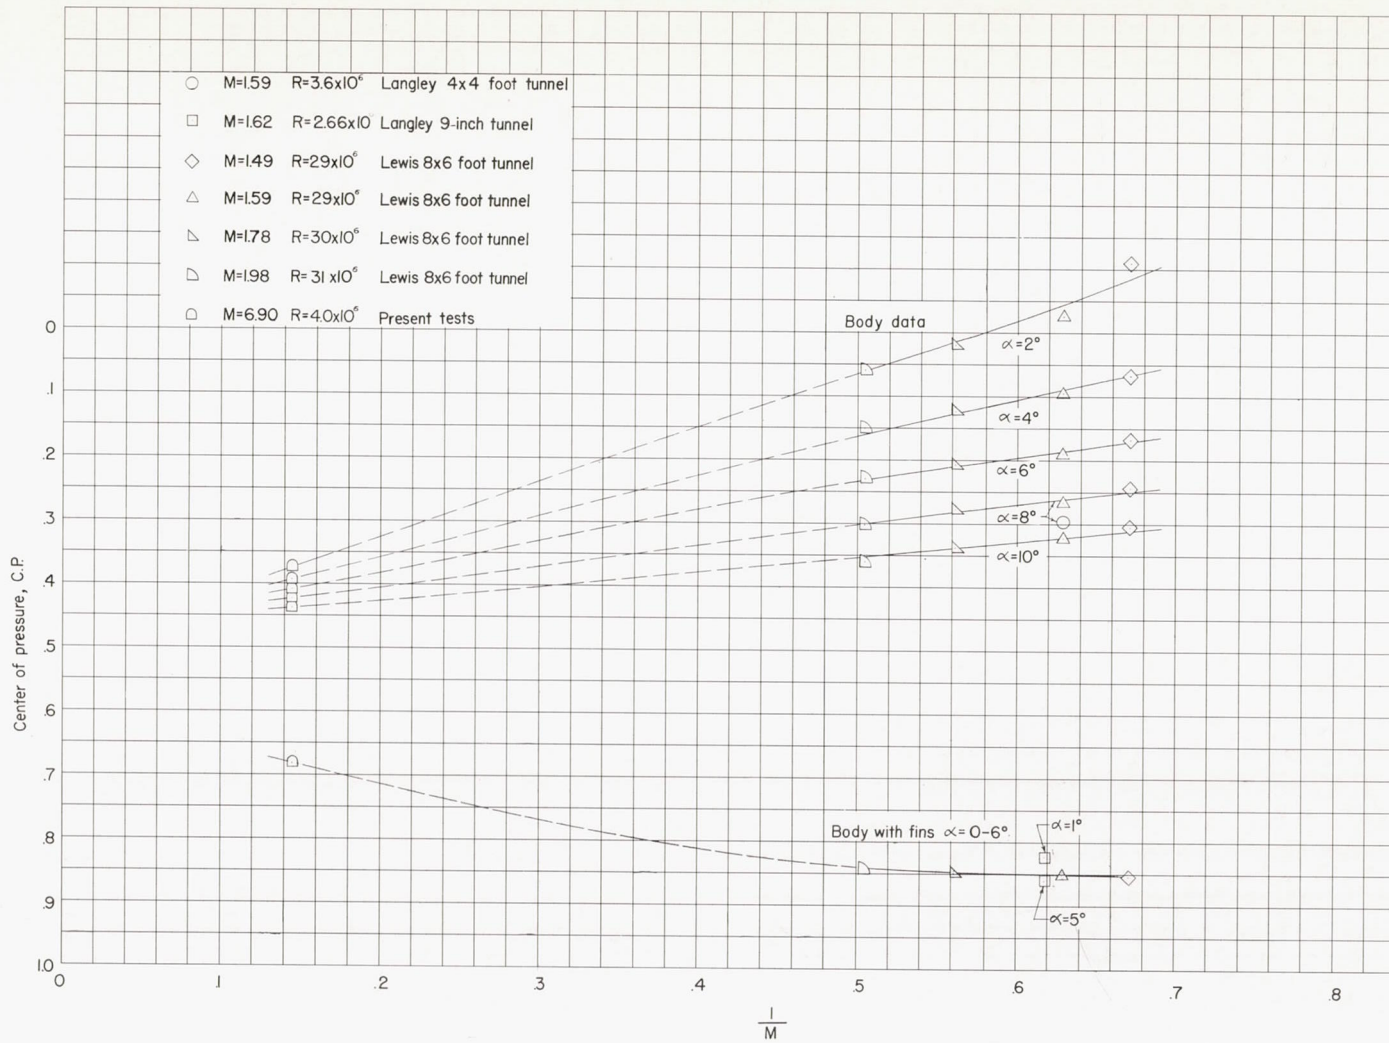 M=1.59 R=3.6x10⁶ Langley 4x4 foot tunnel
M=1.62 R=2.66x10 Langley 9-inch tunnel
M=1.49 R=29x10⁶ Lewis 8x6 foot tunnel
M=1.59 R=29x10⁶ Lewis 8x6 foot tunnel
M=1.78 R=30x10⁶ Lewis 8x6 foot tunnel
M=1.98 R=31x10⁶ Lewis 8x6 foot tunnel
M=6.90 R=4.0x10⁶ Present tests
Body data
α=2°
α=4°
α=6°
α=8°
α=10°
Body with fins α=0-6°
α=1°
α=5°
Center of pressure, C.P.
0
.1
.2
.3
.4
.5
.6
.7
.8
.9
1.0
0 .1 .2 .3 .4 .5 .6 .7 .8
1
M